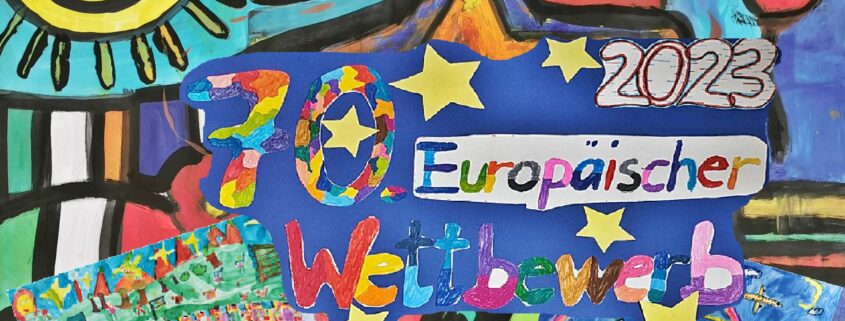 2023
70. Europäischer
Wettbewerb